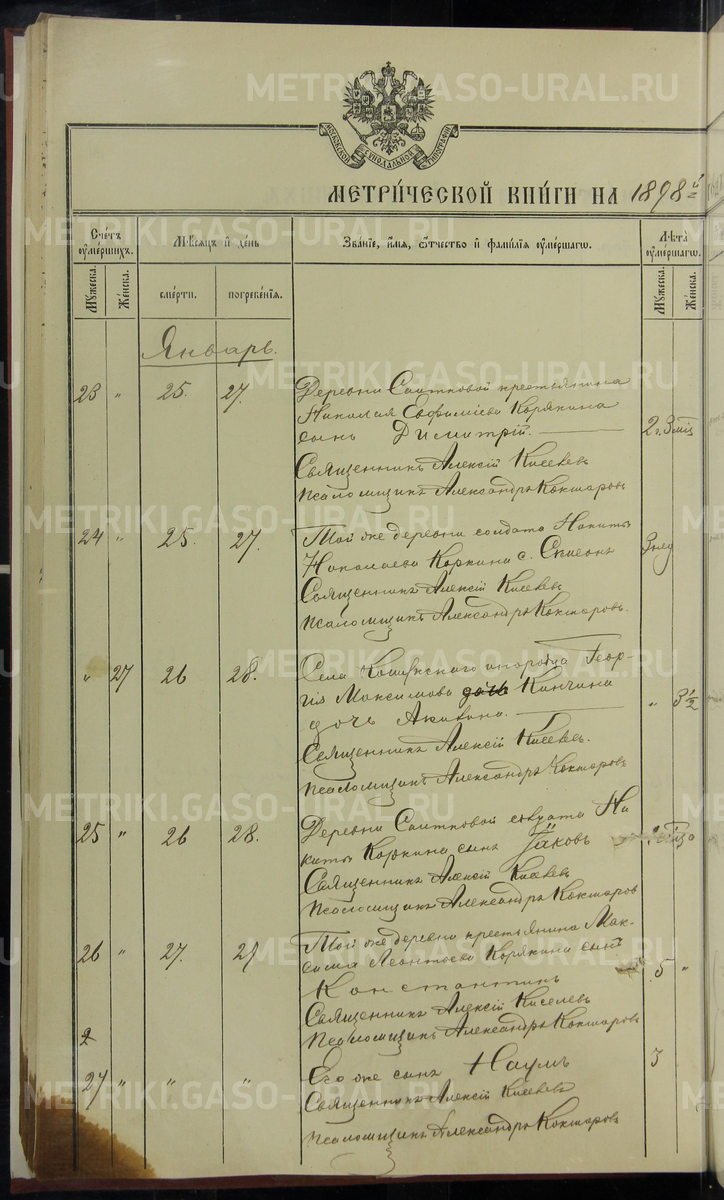 METRIKI.GASO-URAL.RU
МОСКОВСКОЙ СѴНОДАЛЬНОЙ ТИПОГРАФІИ
МЕТРИ́ЧЕСКОЙ КНИ́ГИ НА 1898й
Сче́тъ ᲂу҆ме́ршихъ. Мѣ́сѧцъ и҆ де́нь Зва́нїе, и҆́мѧ, ѻ҆́тчество и҆ фами́лїѧ ᲂу҆ме́ршагѡ. Лѣ́та ᲂу҆ме́ршагѡ.
Му́жеска. Же́нска. сме́рти. погребе́нїѧ. Му́жеска. Же́нска.
Январь.
23 " 25. 27. Деревни Саитковой крестьянина
Николая Евфиміева Корякина
сынъ Димитрій. 2 г. 3 мѣс
Священникъ Алексій Киселевъ
Псаломщикъ Александръ Кокшаровъ
24 " 25. 27. Той же деревни солдата Никиты
Николаева Коркина с. Симеонъ 3 нед
Священникъ Алексій Киселевъ
Псаломщикъ Александръ Кокшаровъ.
" 27 26 28. Села инородца Геор-
гія Максимова дочь
дочь " 3½
Священникъ Алексій Киселевъ.
Псаломщикъ Александръ Кокшаровъ
25 " 26 28. Деревни Саитковой солдата Ни
киты Коркина сынъ Іаковъ
Священникъ Алексій Киселевъ
Псаломщикъ Александръ Кокшаровъ
26 " 27. 29 Той же деревни крестьянина Мак-
сима Леонтьева Корякина сынъ
Константинъ 5 "
Священникъ Алексій Киселевъ
2 Псаломщикъ Александръ Кокшаровъ
27 " " " Его же сынъ Наумъ 3
Священникъ Алексій Киселевъ
Псаломщикъ Александръ Кокшаровъ